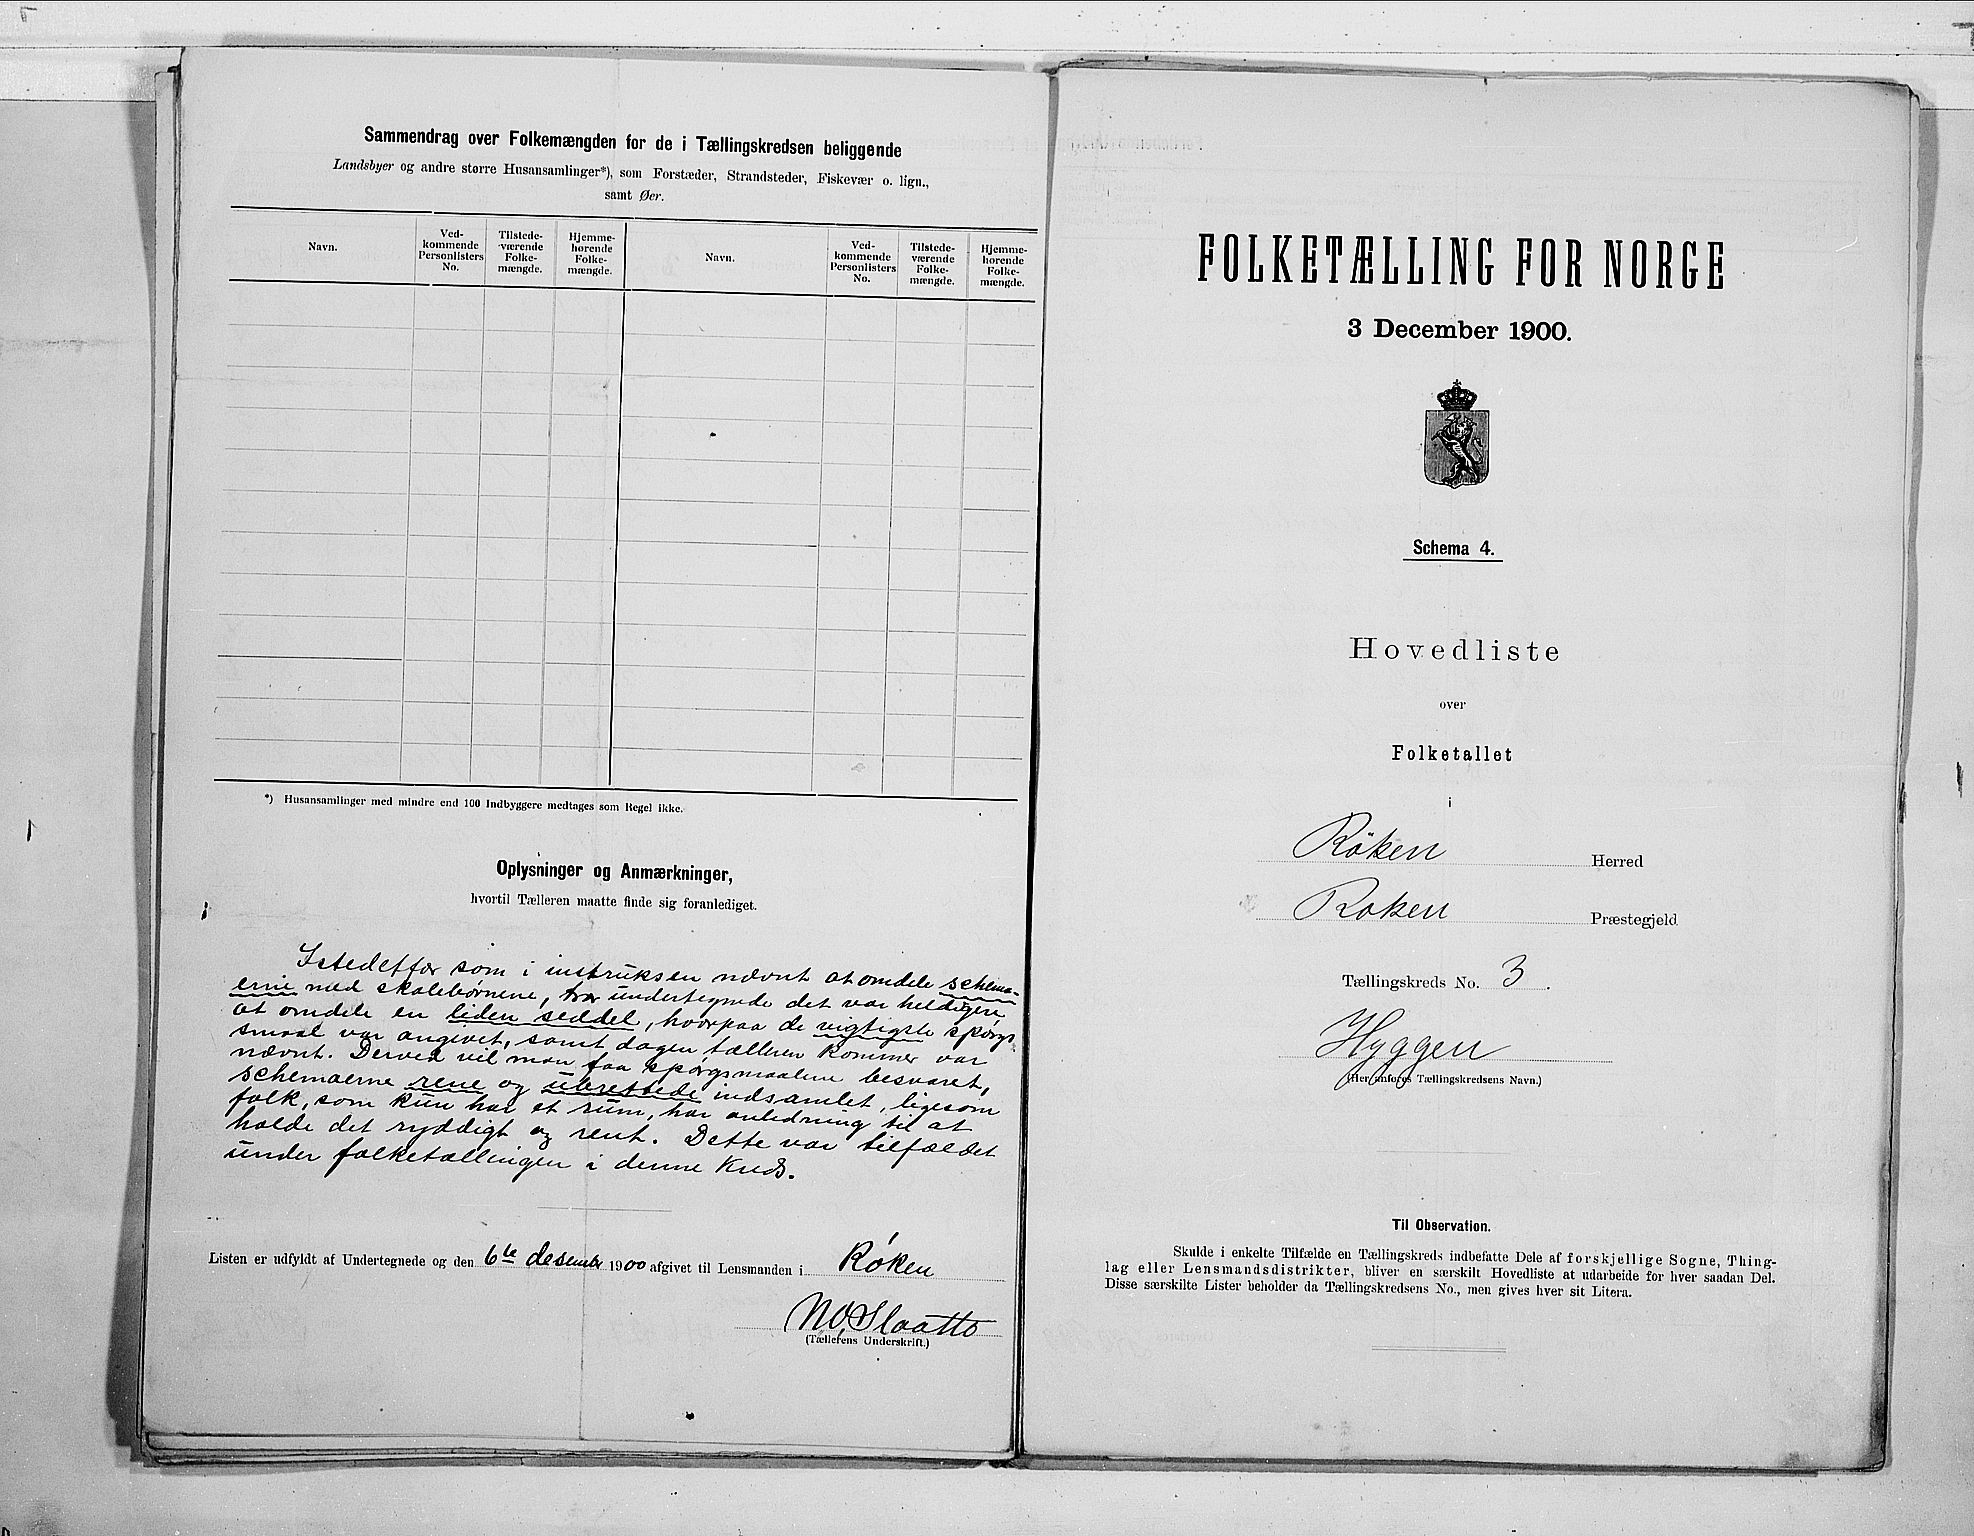 Sammendrag over Folkemængden for de i Tællingskredsen beliggende
Landsbyer og andre større Husansamlinger*), som Forstæder, Strandsteder, Fiskevær o. lign.,
samt Øer.
Navn.
Ved-
kommende
Personlisters
No.
Tilstede-
værende
Folke-
mængde.
Hjemme-
hørende
Folke-
mængde.
Navn.
Ved-
kommende
Personlisters
No.
Tilstede-
værende
Folke-
mængde.
Hjemme-
hørende
Folke-
mængde.
*) Husansamlinger med mindre end 100 Indbyggere medtages som Regel ikke.
Oplysninger og Anmærkninger,
hvortil Tælleren maatte finde sig foranlediget.
Istedetfor som i instruksen nævnt at omdele schema-
erne med skolebørnene, tror undertegnede det var heldigere
at omdele en liden seddel, hvorpaa de vigtigste spørgs-
smaal var angivet, samt dagen tælleren kommer var
nævnt. Derved vil man faa spørgsmaalene besvaret,
schemaerne rene og uberettede indsamlet, ligesom
folk, som kun har et rum, har anledning til at
holde det ryddigt og rent. Dette var tilfældet
under folketællingen i denne Kreds.
Listen er udfyldt af Undertegnede og den 6te desember 1900 afgivet til Lensmanden i Røken
N.O. Slaatto
(Tællerens Underskrift.)
FOLKETÆLLING FOR NORGE
3 December 1900.
Schema 4.
Hovedliste
over
Folketallet
i
Röken Herred
Roken Præstegjeld
Tællingskreds No. 3.
Hyggen
(Her anføres Tællingskredsens Navn.)
Til Observation.
Skulde i enkelte Tilfælde en Tællingskreds indbefatte Dele af forskjellige Sogne, Thing-
lag eller Lensmandsdistrikter, bliver en særskilt Hovedliste at udarbeide for hver saadan Del.
Disse særskilte Lister beholder da Tællingskredsens No., men gives hver sit Litera.